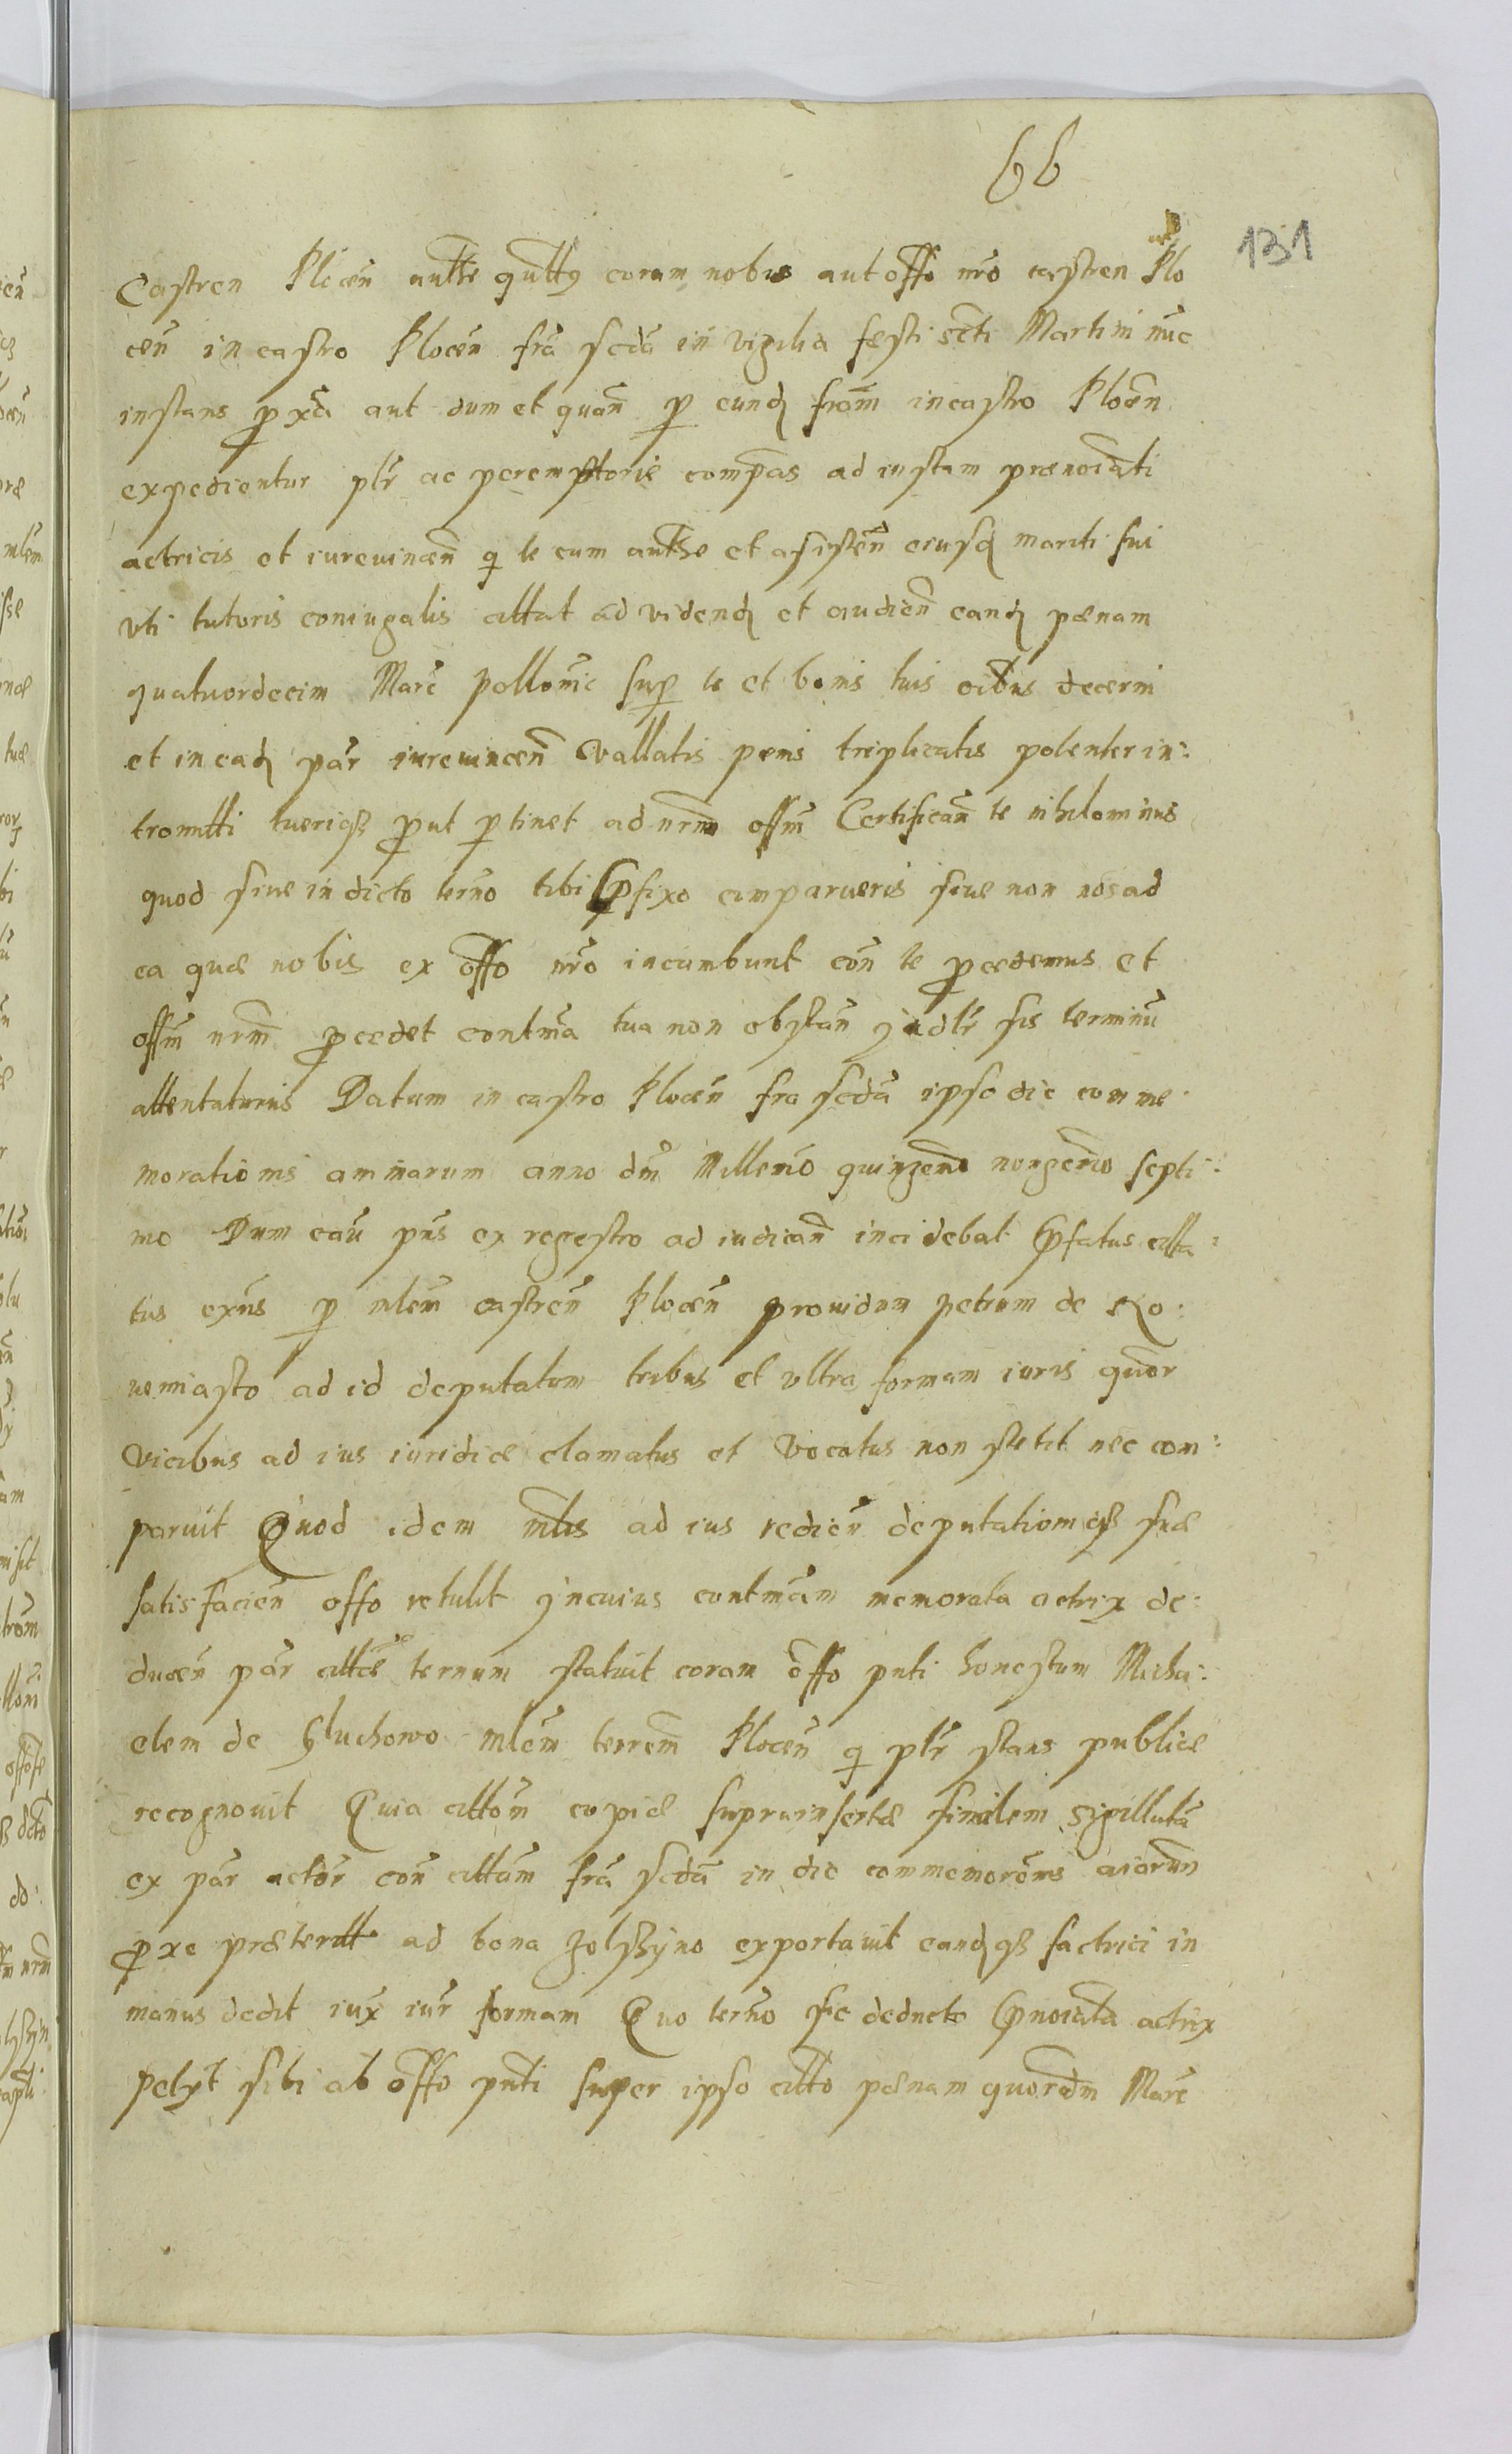 66
131
Castren Plocen autte qultq coram nobis aut offo nro castren Plo
cen in castro Plocen fra scda in vigilia festi scti Martini nuc
instans proxa aut dum et quan p eund fram in castro Plocen
expedientur plr ac peremptorie compas ad instam prænoiati
actricis et iurevincen q te cum autthe et asisten eiusd mariti sui
vti tutoris coniugalis cittat ad vidend et audien eand pænam
quatuordecim Marc pollonic sup te et bonis tuis oibus decerni
et in ead par iurevincen Vallatis penis triplicatis potenter in:
tromitti tueriq prout ptinet ad nrm offm Certifican te nihilominus
quod siue in dicto termo tibi pfixo comparueris siue non nos ad
ea quæ nobis ex offo nro incumbunt con te procedemus et
offm nrm procedet contmtia tua non obstan judlr sis terminu
attentaturus Datum in castro Plocen fra scda ipso die comme
morationis animarum anno dni Millemo quingenmo nongemo septi:
mo Dum cau pns ex regestro ad iudican incidebat Pfatus citta:
tus exns p mlem castren Plocen prouidum petrum de No:
uemiasto ad id deputatum tribus et vltra formam iuris quor
vicibus ad ius iuridice clamatus et Vocatus non stetit nec com:
paruit Quod idem mlis ad ius redien deputationiq suæ
satisfacien offo retulit jncuius contmciam memorata actrix de:
ducen par cittæ ternum statuit coram offo pnti honestum Micha:
elem de Gluchowo mlem terrem Plocen q plr stans publice
recognovit Quia cittom copiæ suprainsertæ similem sigillata
ex par actor con cittam fra scda in die commemorons aiarum
proxe præteritt ad bona Zolszyno exportavit eandq factrici in
manus dedit iux iur formam Quo termo sic deducto Pnoiata actrix
petyt sibi ab offo pnti super ipso citto pænam quordm Marc